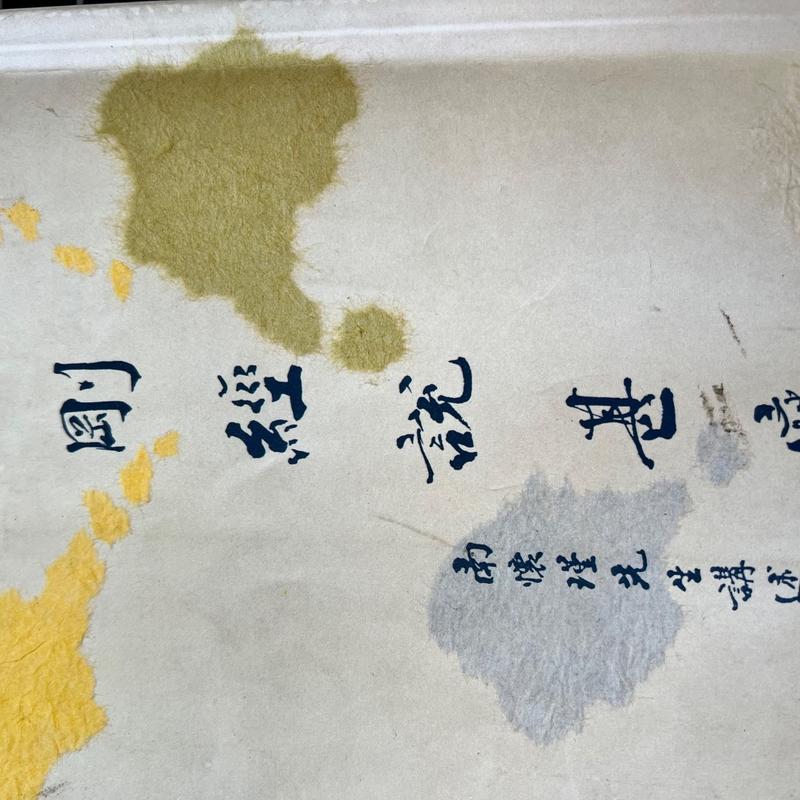 剛經說甚
南懷瑾先生講述